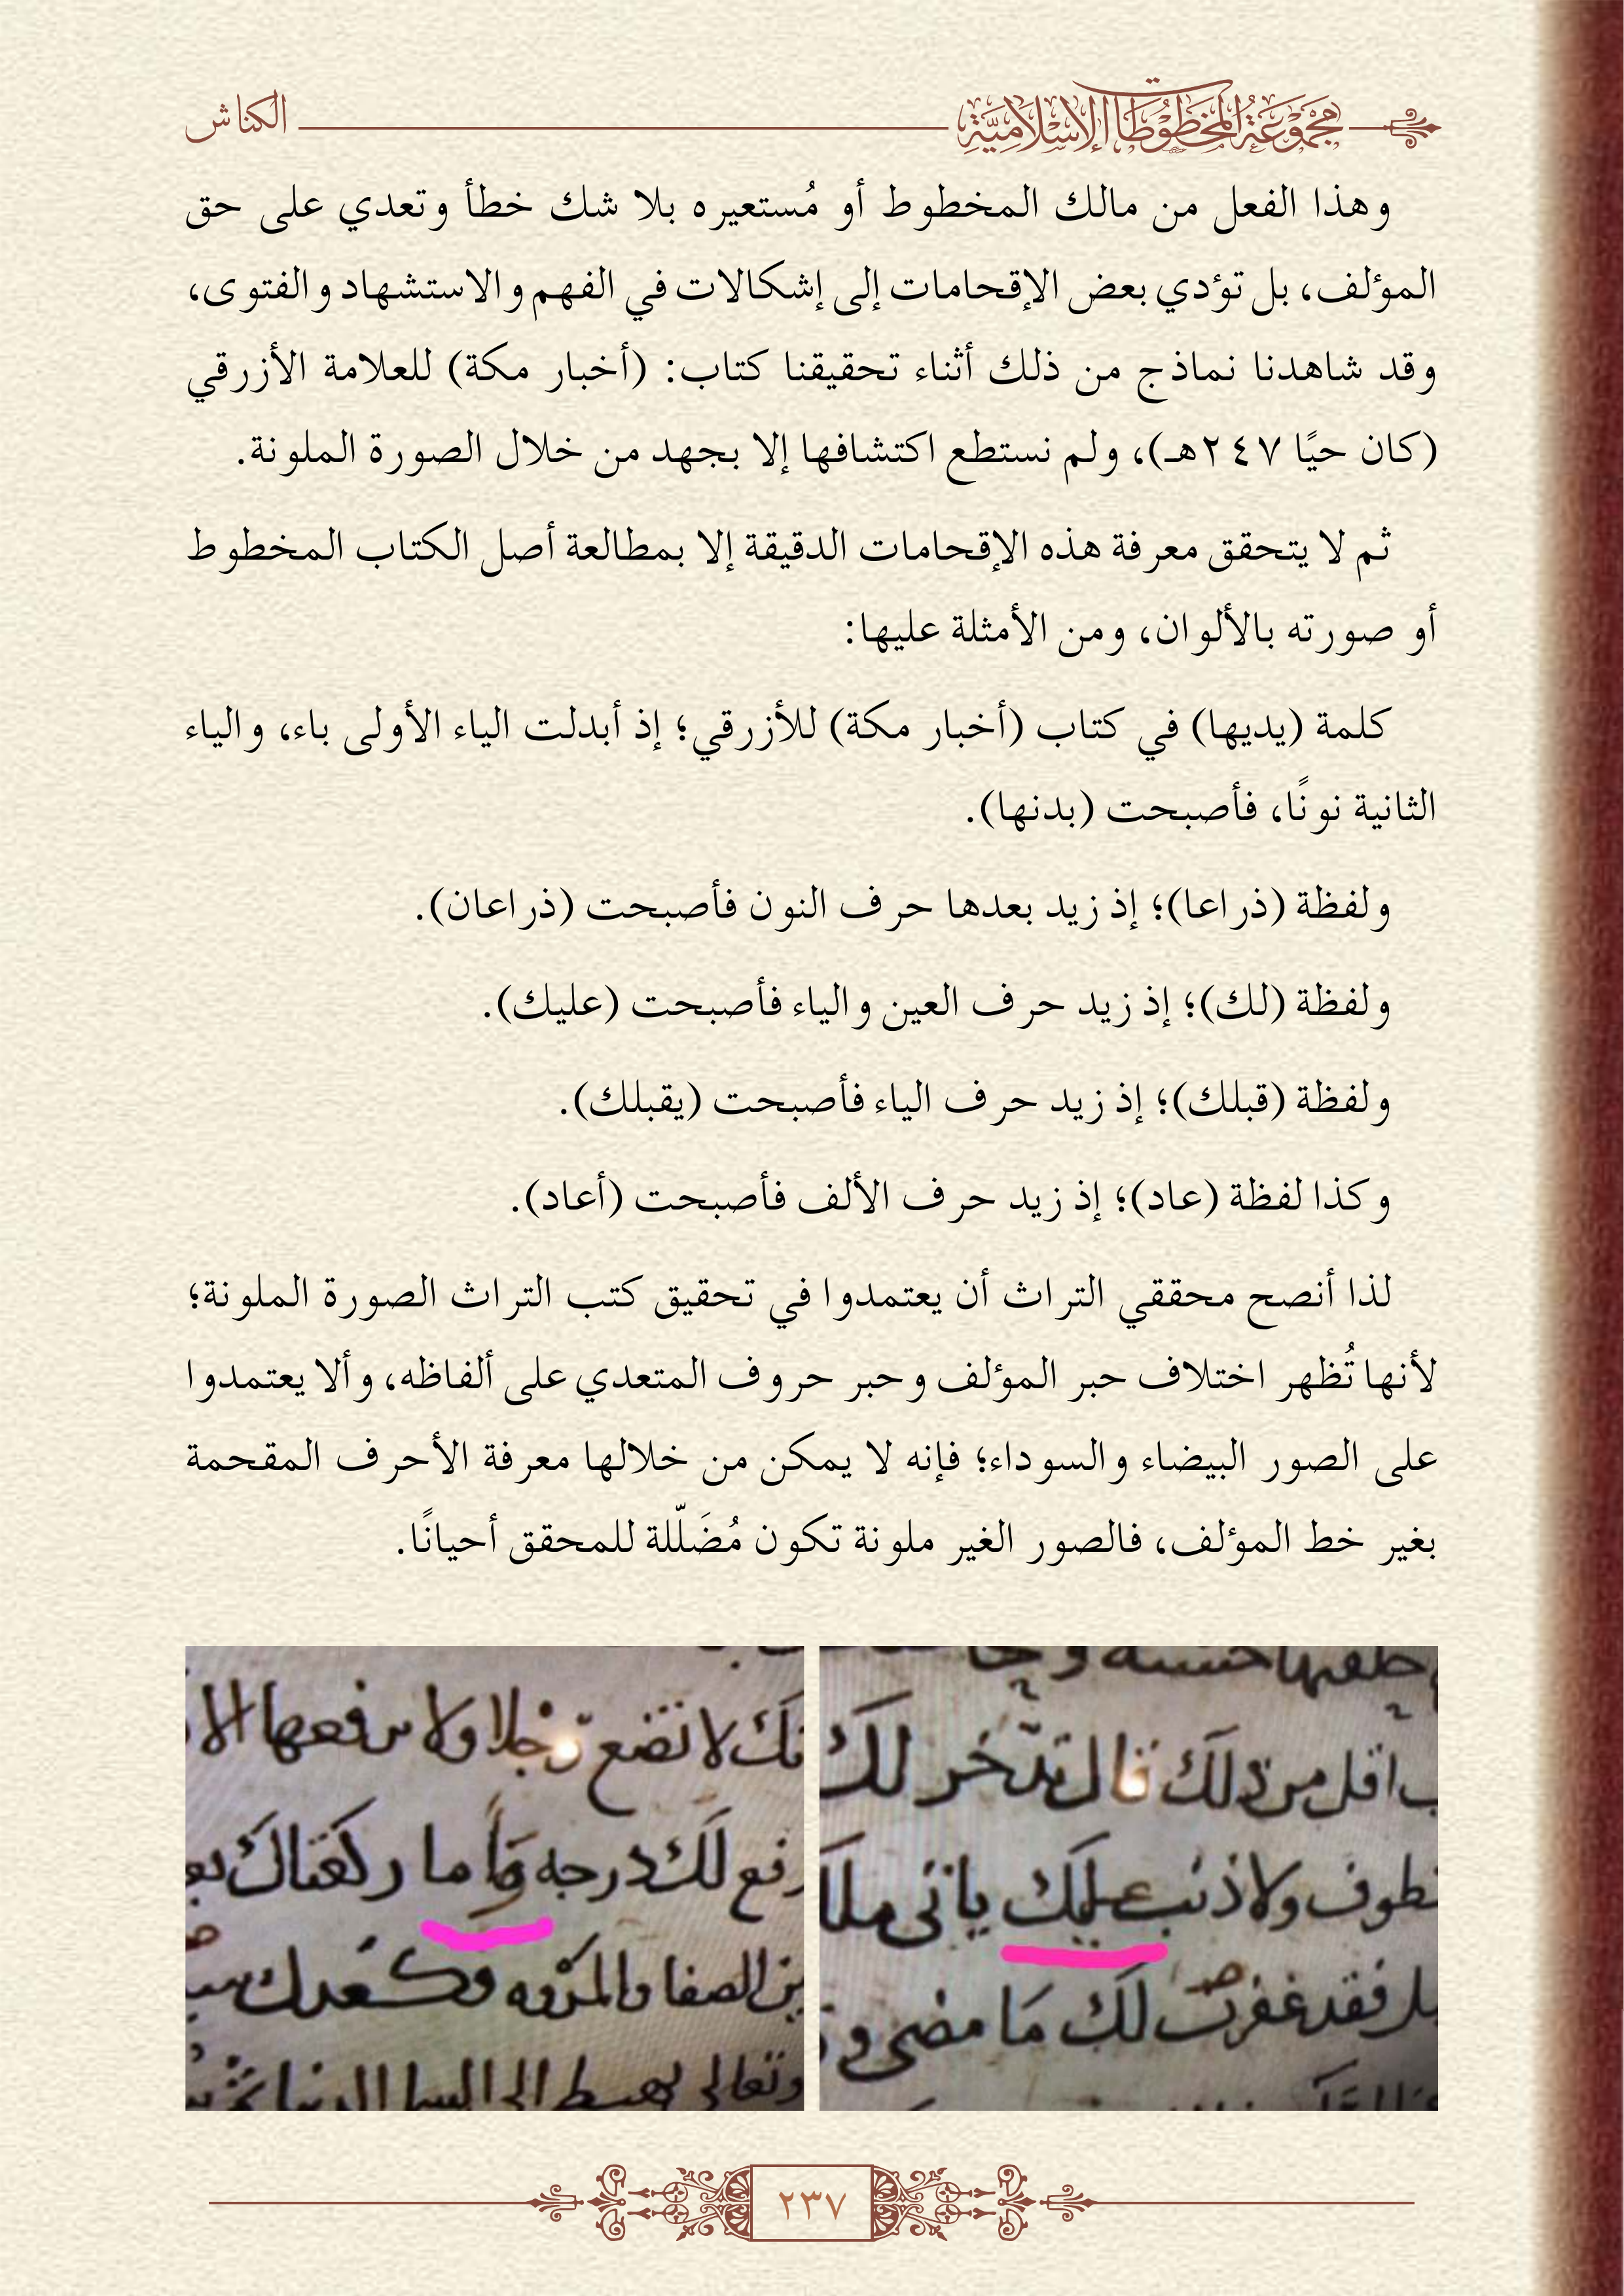 مجموعة المخطوطات الإسلامية
الكناش
وهذا الفعل من مالك المخطوط أو مُستعيره بلا شك خطأ وتعدي على حق
المؤلف، بل تؤدي بعض الإقحامات إلى إشكالات في الفهم والاستشهاد والفتوى،
وقد شاهدنا نماذج من ذلك أثناء تحقيقنا كتاب: (أخبار مكة) للعلامة الأزرقي
(كان حيًا ٢٤٧هـ)، ولم نستطع اكتشافها إلا بجهد من خلال الصورة الملونة.
ثم لا يتحقق معرفة هذه الإقحامات الدقيقة إلا بمطالعة أصل الكتاب المخطوط
أو صورته بالألوان، ومن الأمثلة عليها:
كلمة (يديها) في كتاب (أخبار مكة) للأزرقي؛ إذ أبدلت الياء الأولى باء، والياء
الثانية نونًا، فأصبحت (بدنها).
ولفظة (ذراعا)؛ إذ زيد بعدها حرف النون فأصبحت (ذراعان).
ولفظة (لك)؛ إذ زيد حرف العين والياء فأصبحت (عليك).
ولفظة (قبلك)؛ إذ زيد حرف الياء فأصبحت (يقبلك).
وكذا لفظة (عاد)؛ إذ زيد حرف الألف فأصبحت (أعاد).
لذا أنصح محققي التراث أن يعتمدوا في تحقيق كتب التراث الصورة الملونة؛
لأنها تُظهر اختلاف حبر المؤلف وحبر حروف المتعدي على ألفاظه، وألا يعتمدوا
على الصور البيضاء والسوداء؛ فإنه لا يمكن من خلالها معرفة الأحرف المقحمة
بغير خط المؤلف، فالصور الغير ملونة تكون مُضَلّلة للمحقق أحيانًا.
اقل من ذلك قال تدّخر لك
تطوف ولا ذنب عليك ياتى ملك
فقد غفرت لك مَا مضى و
لا تضع رجلا ولا ترفعها الا
لَك درجه واما ركعتاك
الصفا والمروه
وتعالى يهبط الى السما الدنيا
٢٣٧